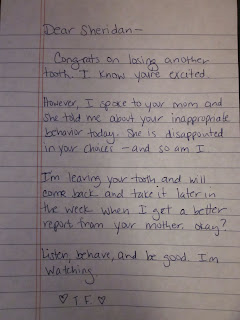 Dear Sheridan-
Congrats on losing another
tooth. I know you're excited.
However, I spoke to your mom and
she told me about your inappropriate
behavior today. She is disappointed
in your choices - and so am I.
I'm leaving your tooth and will
come back and take it later in
the week when I get a better
report from your mother, okay?
Listen, behave, and be good. I'm
watching.
♡ T.F. ♡